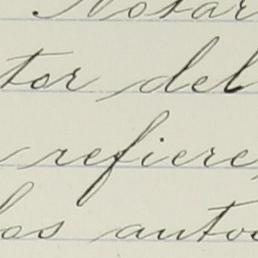 Notar
tor del
refiere,
los auto